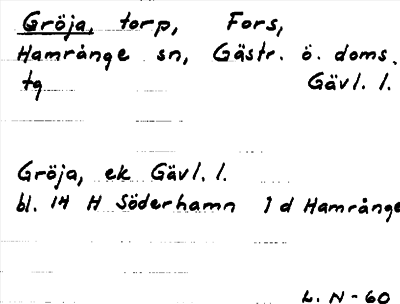 Gröja, torp, Fors,
Hamrånge sn, Gästr. ö. doms.
tg Gävl. l.
Gröja, ek Gävl. l.
bl. 14 H Söderhamn 1 d Hamrånge
L. N-60